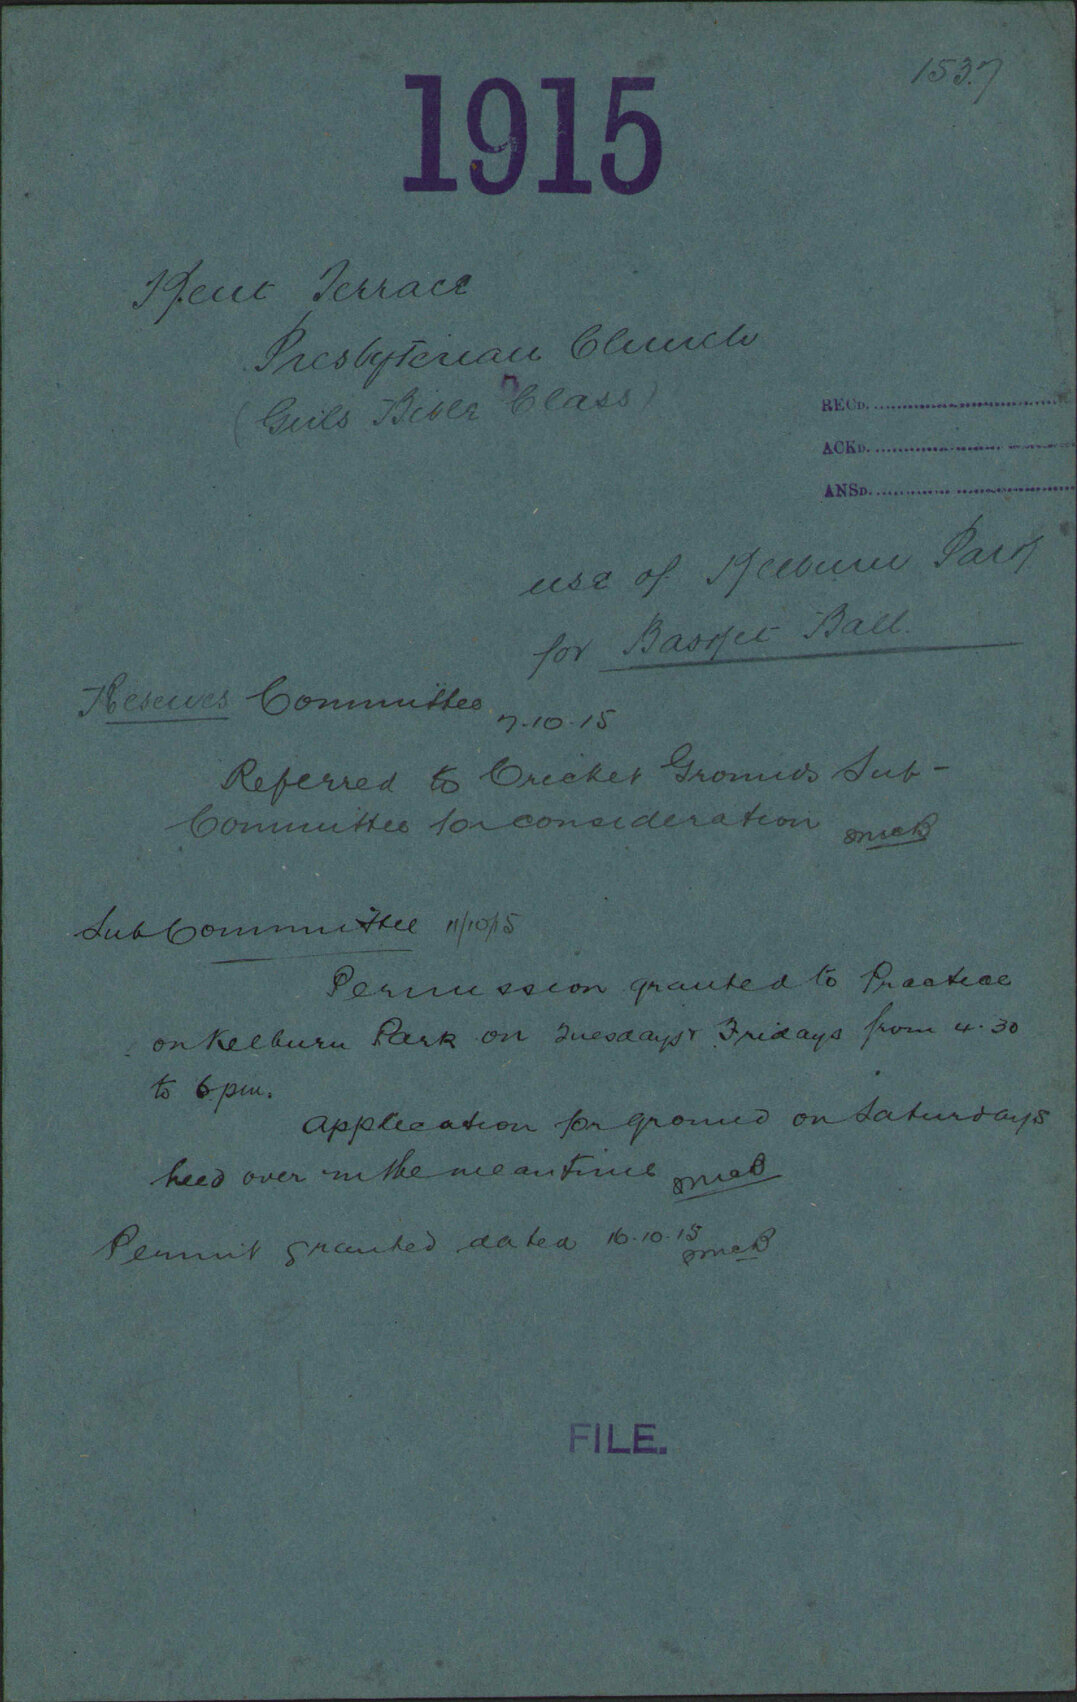 1537
1915
Kent Terrace
Presbyterian Church
(Girls Bible Class)
RECD.
ACKD.
ANSD.
use of Kelburn Park
for Basket Ball.
Reserves Committee 7.10.15
Referred to Cricket Grounds Sub-
Committee for consideration
Sub Committee 11/10/15
Permission granted to Practice
on Kelburn Park on Tuesdays & Fridays from 4.30
to 6 pm.
Application for ground on Saturdays
held over in the meantime
Permit granted dated 16.10.15
FILE.